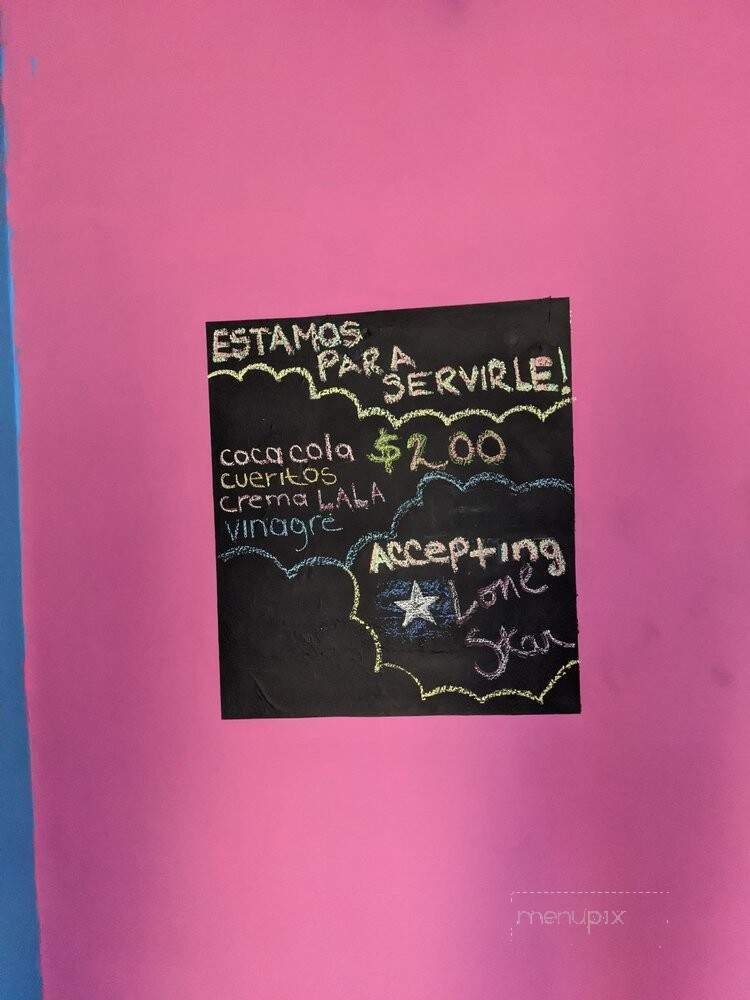 ESTAMOS
PARA
SERVIRLE!
coca cola $200
cueritos
crema LALA
vinagre
Accepting
Lone
Star
menupix